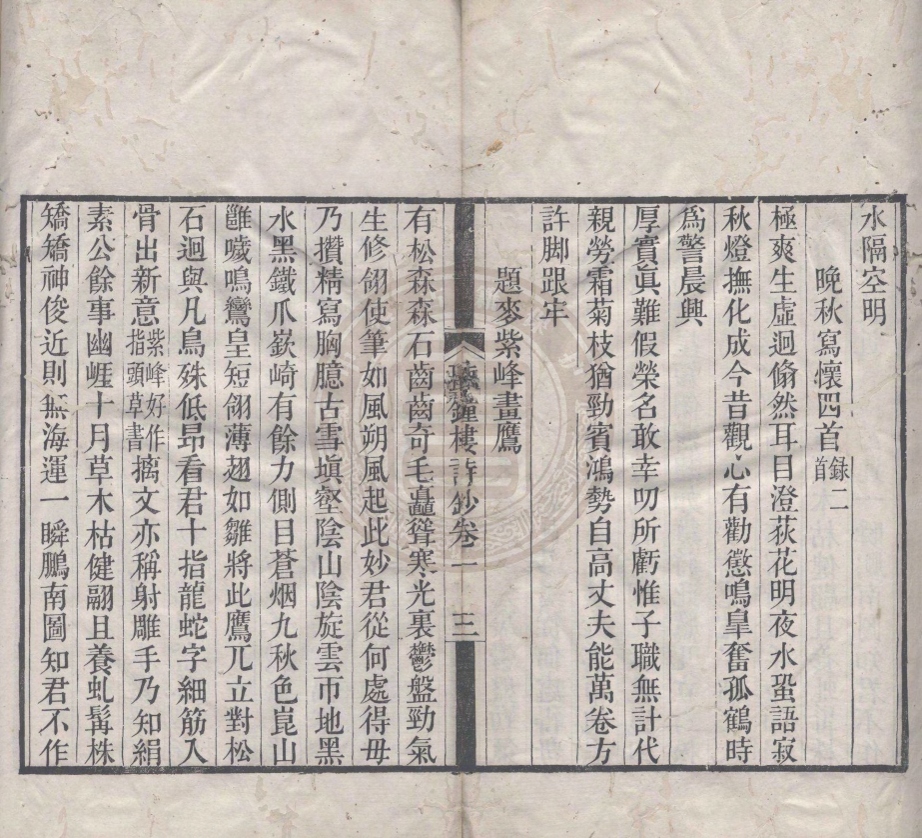 水隔空明
晚秋寫懷四首錄二首
極爽生虛迥翛然耳目澄荻花明夜水蛩語寂
秋燈撫化成今昔觀心有勸懲鳴臯奮孤鶴時
爲警晨興
厚實眞難假榮名敢幸叨所虧惟子職無計代
親勞霜菊枝猶勁賓鴻勢自高丈夫能萬卷方
許脚跟牢
題麥紫峰畫鷹
鐘樓詩鈔卷一 三
有松森森石齒齒奇毛矗聳寒光裏鬱盤勁氣
生修翎使筆如風朔風起此妙君從何處得毋
乃攢精寫胸臆古雪塡壑陰山陰旋雲帀地黑
水黑鐵爪嶔崎有餘力側目蒼烟九秋色崑山
雖噦鳴鸞皇短翎薄翅如雛將此鷹兀立對松
石迴與凡鳥殊低昂看君十指龍蛇字細筋入
骨出新意紫峰好作指頭草書摛文亦稱射雕手乃知絹
素公餘事幽崕十月草木枯健翮且養虬髯株
矯矯神俊近則無海運一瞬鵬南圖知君不作